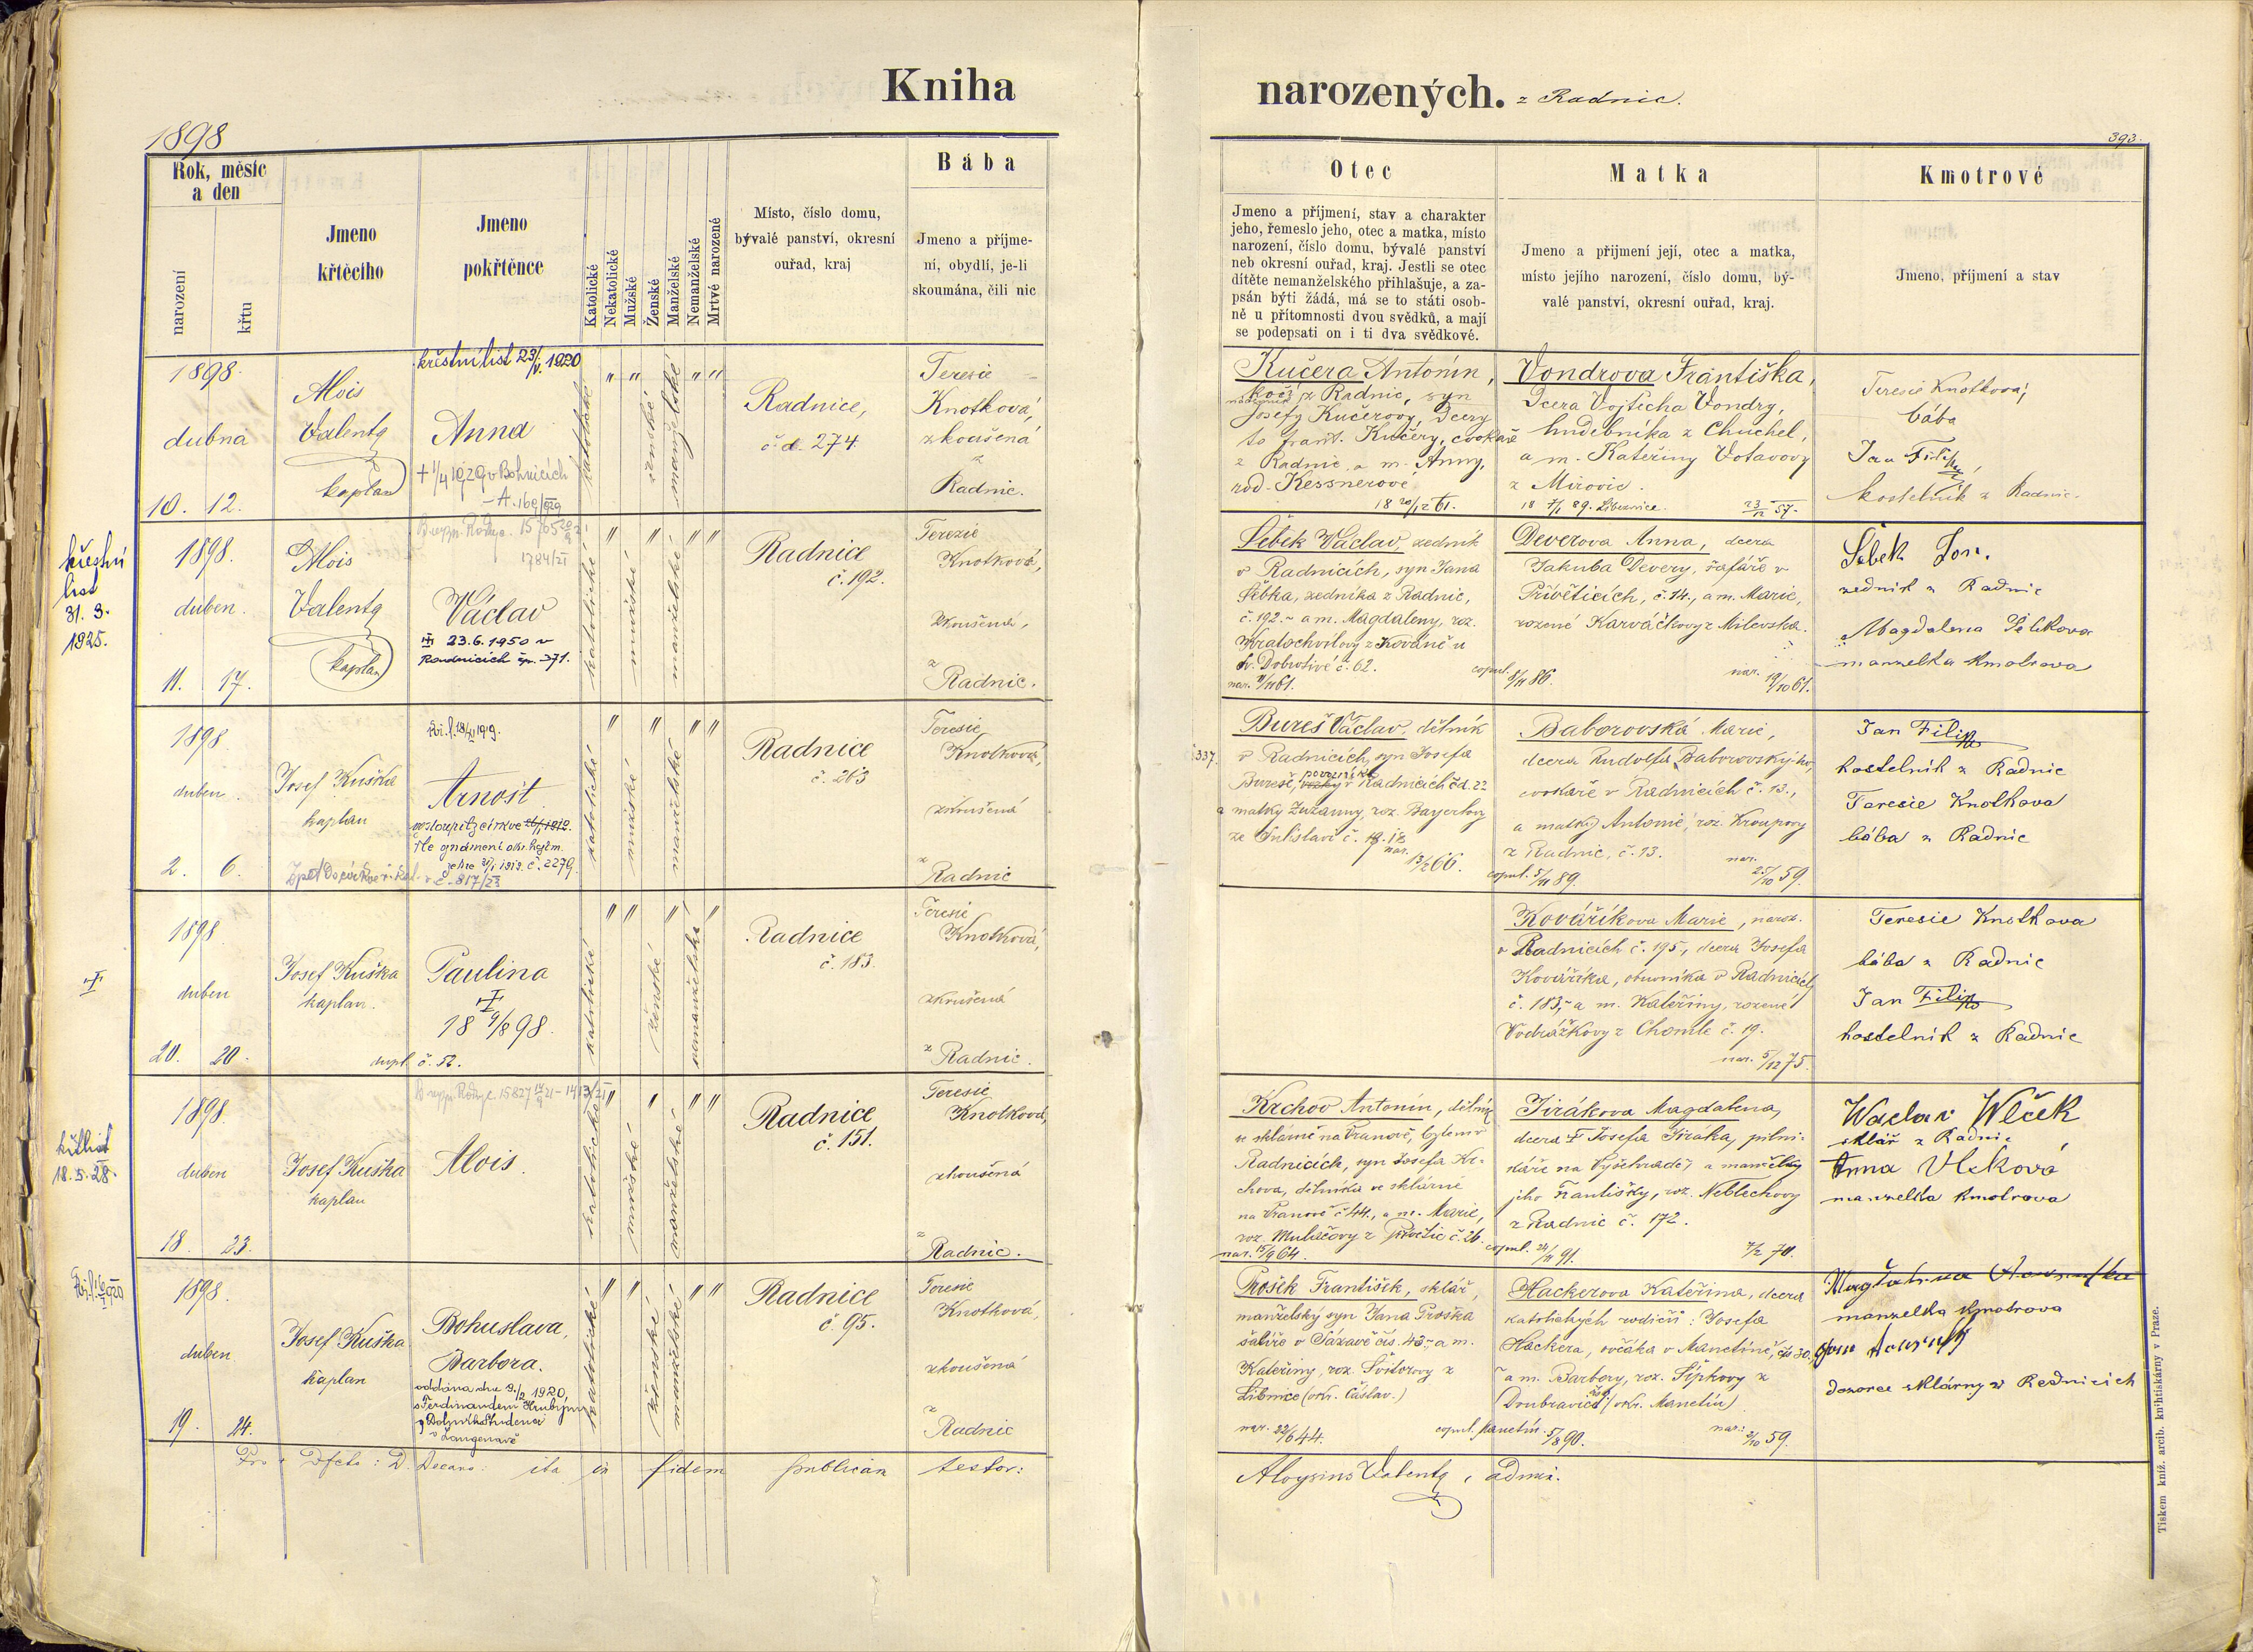 Kniha narozených. z Radnic.
1898
393.
Rok, měsíc
a den
narození
křtu
Jmeno
křtěcího
Jmeno
pokřtěnce
Katolické
Nekatolické
Mužské
Ženské
Manželské
Nemanželské
Mrtvé narozené
Místo, číslo domu,
bývalé panství, okresní
ouřad, kraj
Bába
Jmeno a příjme-
ní, obydlí, je-li
skoumána, čili nic
Otec
Jmeno a příjmení, stav a charakter
jeho, řemeslo jeho, otec a matka, místo
narození, číslo domu, bývalé panství
neb okresní ouřad, kraj. Jestli se otec
dítěte nemanželského přihlašuje, a za-
psán býti žádá, má se to státi osob-
ně u přítomnosti dvou svědků, a mají
se podepsati on i ti dva svědkové.
Matka
Jmeno a přijmení její, otec a matka,
místo jejího narození, číslo domu, bý-
valé panství, okresní ouřad, kraj.
Kmotrové
Jmeno, příjmení a stav
1898.
dubna
10. 12.
Alois
Valenta
kaplan
křestní list 23/V. 1920
Anna
+ 1/4 1929 v Bohnicích
katolické
" "
ženské
manželské
" "
Radnice,
č. d. 274.
Teresie
Knotková,
zkoušená
z
Radnic.
Kučera Antonín,
kočí z Radnic, syn
Josefy Kučerovy, dcery
to Frant. Kučery, cvokaře
z Radnic, a m. Anny,
rod. Kessnerové
18 20/12 61.
Vondrova Františka,
dcera Vojtěcha Vondry,
hudebníka z Chuchel,
a m. Kateřiny Votavovy
z Mirovic.
18 7/1 89. Libeznice.
23/12 57.
Teresie Knotková,
bába
Jan Filip,
kostelník z Radnic.
křestní
list
31. 3.
1925.
1898.
duben.
11. 17.
Alois
Valenta
kaplan
Václav
23.6.1950 v
Radnicích čp. 371.
katolické
"
mužské
"
manželské
" "
Radnice
č. 192.
Terezie
Knotková,
zkoušená,
z
Radnic.
Šebek Václav, zedník
v Radnicích, syn Jana
Šebka, zedníka z Radnic,
č. 192. a m. Magdaleny, roz.
Kratochvílovy z Kováně u
sv. Dobrotivé č. 62.
nar. 9/11 61.
copul. 8/11 86.
Deverova Anna, dcera
Jakuba Devery, šafáře v
Přívěticích, č. 14., a m. Marie,
rozené Karváčkovy z Milevska.
nar. 19/10 61.
Šebek Jos.
zedník z Radnic
Magdalena Šebkova
manzelka kmotrova
1898.
duben.
2. 6.
Josef Kuška
kaplan
Kř. l. 18/XI 1919.
Arnošt
vystoupil z církve
dle oznámení okr. hejtm.
č. 2279.
č. 817/23
katolické
"
mužské
"
manželské
" "
Radnice
č. 263
Teresie
Knotková,
zkoušená
z
Radnic
337.
Bureš Václav, dělník
v Radnicích, syn Josefa
Bureše, v Radnicích čd. 22
a matky Zuzanny, roz. Bayerlovy
nar.
13/2 66.
copul. 5/11 89.
Baborovská Marie,
dcera Rudolfa Baborovského,
cvokaře v Radnicích č. 13.,
a matky Antonie, roz. Kroupovy
z Radnic, č. 13.
nar.
25/10 59.
Jan Filip
kostelník z Radnic
Teresie Knotkova
bába z Radnic
1898
duben
20. 20.
Josef Kuška
kaplan.
Paulina
18 9/8 98.
č. 52.
katolické
" "
ženské
"
nemanželské
"
Radnice
č. 183.
Teresie
Knotková,
zkoušená
z
Radnic.
Kováříkova Marie, naroz.
v Radnicích č. 195, dcera Josefa
Kováříka, obuvníka v Radnicích,
č. 183, a m. Kateřiny, rozené
Vodrážkovy z Chomle č. 19.
nar. 5/12 75.
Teresie Knotkova
bába z Radnic
Jan Filip
kostelník z Radnic
18.5.28.
1898.
duben
18. 23.
Josef Kuška
kaplan
Alois.
katolické
"
mužské
"
manželské
" "
Radnice
č. 151.
Teresie
Knotková,
zkoušená
z
Radnic.
Krchov Antonín, dělník
ve sklárně na Vranově, bytem v
Radnicích, syn Josefa Kr-
chova, dělníka ve sklárně
na Vranově č. 44., a m. Marie,
nar. 15/9 64.
copul. 24/11 91.
Jirákova Magdalena,
dcera † Josefa Jiraka, pilni-
káře na Vyšehradě, a manželky
jeho Františky, roz. Neblechovy
z Radnic č. 172.
7/2 70.
Waclav Wlček
sklář z Radnic
Anna Vlčková
manzelka kmotrova
1898.
duben
19. 24.
Josef Kuška
kaplan
Bohuslava,
Barbora.
oddána dne 9./2 1920,
s Ferdinandem Hrubým
katolické
" "
ženské
manželské
" "
Radnice
č. 95.
Teresie
Knotková,
zkoušená
z
Radnic
Prošek František, sklář,
manželský syn Jana Proška
šatiře v Sázavě čís. 43, a m.
Kateřiny, roz. Švitorovy z
Libnice (okr. Čáslav.)
nar. 22/6 44.
copul. Manetín. 5/8 90.
Hackerova Kateřina, dcera
katolických rodičů: Josefa
Hackera, ovčáka v Manetíně, čp 30,
a m. Barbory, roz. Šípkovy z
Doubravice (okr. Manetín)
nar: 2/10 59.
manzelka kmotrova
dozorce sklárny v Radnicích
D. Decano: ita in fidem publicam testor:
Aloysius Valenta, admi.
Tiskem kníž. arcib. knihtiskárny v Praze.